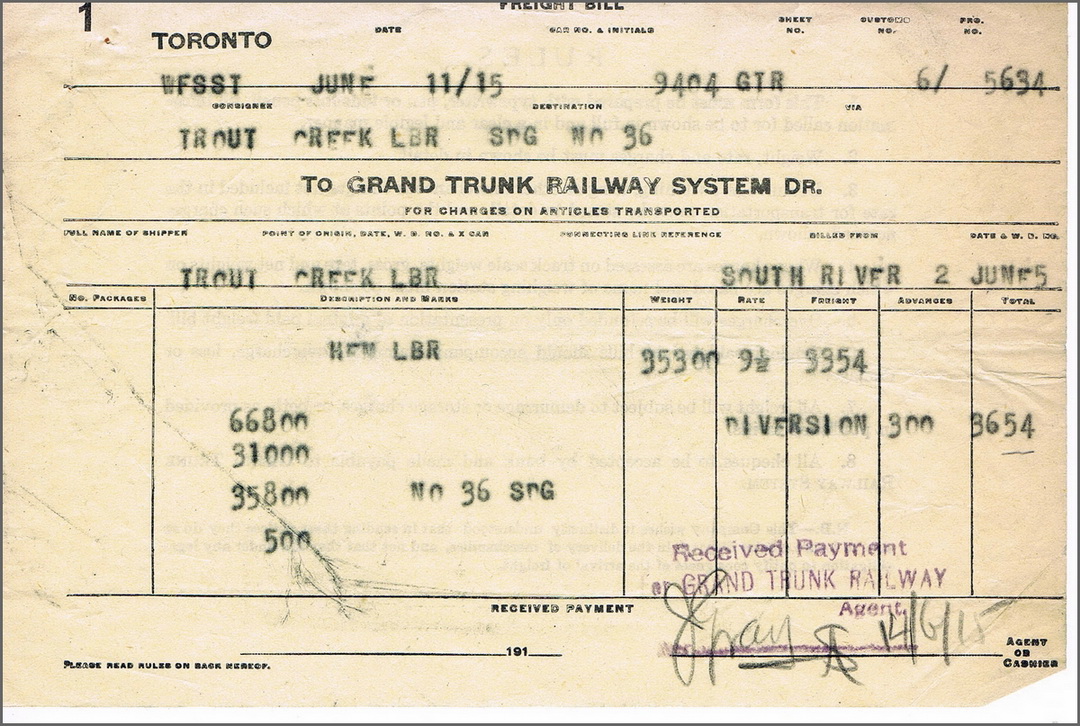 FREIGHT BILL
1
TORONTO DATE CAR NO. & INITIALS SHEET NO. CUSTOMS NO. PRO. NO.
WFSST JUNE 11/15 9404 GTR 6/ 5634
CONSIGNEE DESTINATION VIA
TROUT CREEK LBR SPG NO 36
TO GRAND TRUNK RAILWAY SYSTEM DR.
FOR CHARGES ON ARTICLES TRANSPORTED
FULL NAME OF SHIPPER POINT OF ORIGIN, DATE, W. B. NO. & X CAR CONNECTING LINE REFERENCE BILLED FROM DATE & W. B. NO.
TROUT CREEK LBR SOUTH RIVER 2 JUNE5
NO. PACKAGES DESCRIPTION AND MARKS WEIGHT RATE FREIGHT ADVANCES TOTAL
HEM LBR 35300 9½ 3354
66800 DIVERSION 300 3654
31000
35800 NO 36 SPG
500
Received Payment
GRAND TRUNK RAILWAY
RECEIVED PAYMENT Agent.
14/6/15
191 AGENT OR CASHIER
PLEASE READ RULES ON BACK HEREOF.